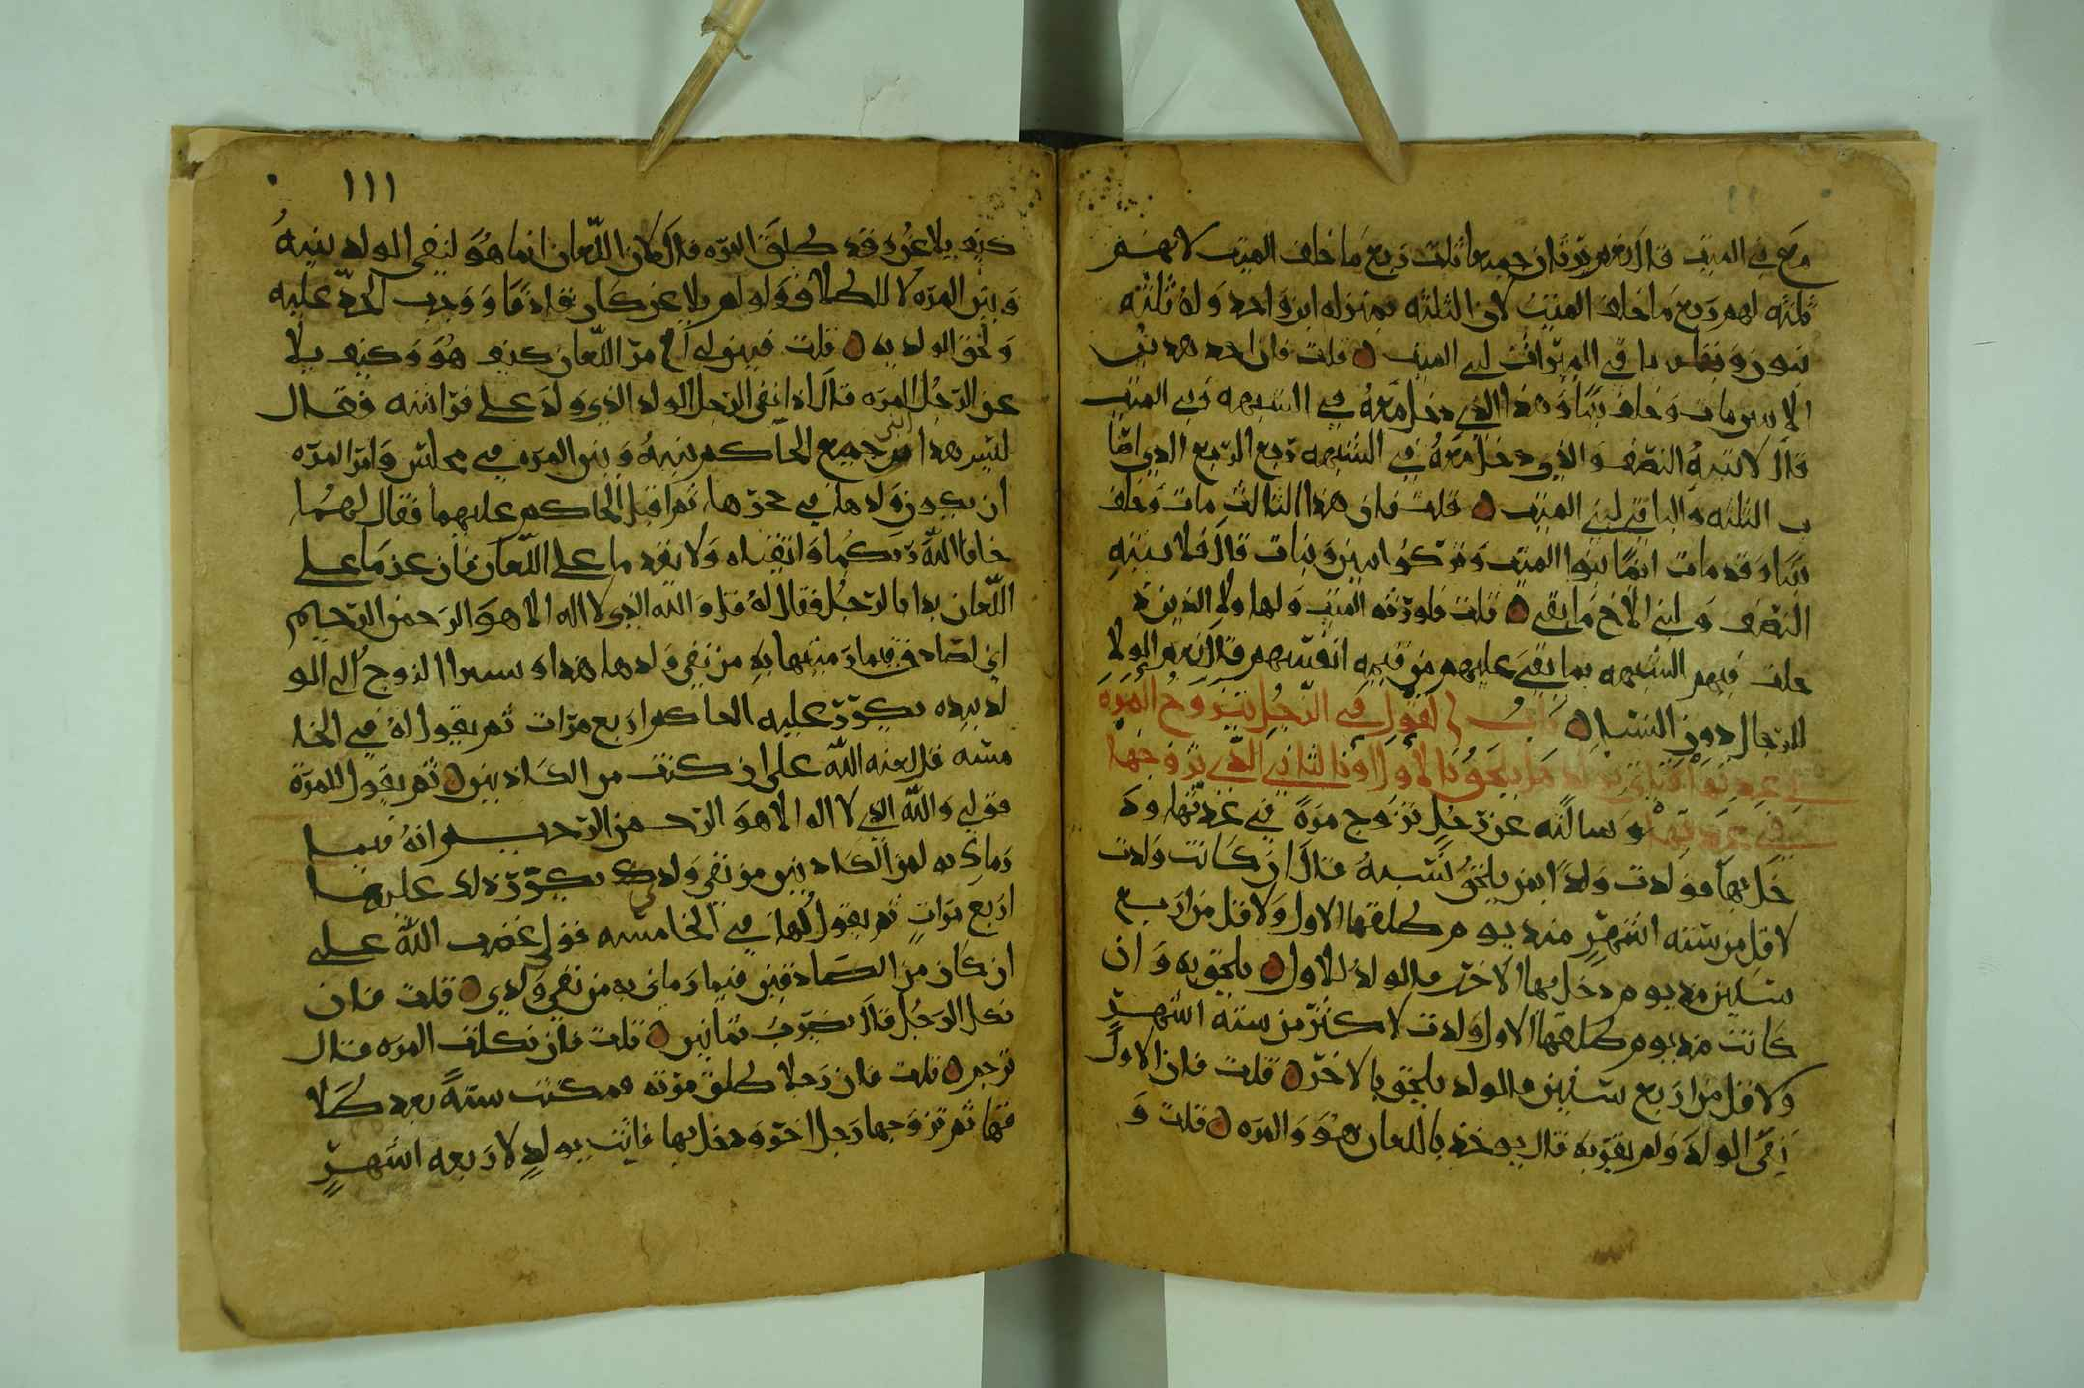 مع في الميت قال نعم يرثان جميعا ثلث ربع ما خلف الميت لانهم
ثلثه لهم ربع ما خلف الميت لان الثلثه بمنزله ابن واحد وله ثلثه
بنون وبقي باقي الميراث لبني الميت قلت فان احد هذين
الابنين مات وخلف بنتا وهذا الذي دخل معه في الشبهه وبني الميت
قال لابنته النصف والذي دخل معه في الشبهه ربع الربع الذي اتا
ب الثلثه والباقي لبني الميت قلت فان هذا الثالث مات وخلف
بنتا وقد مات ايضا بنوا الميت وتركوا بنين وبنات قال فلابنته
النصف ولبني الاخ ما بقي قلت فلو رثه الميت ولها ولاء الذين د
خلت فيهم الشبهه بما بقي عليهم من قيمه انفسهم قال نعم الولا
للرجال دون النسا باب القول في الرجل يتزوج المره
في عدتها فتاتي بولد من يلحق بالاول او بالثاني الذي تزوجها
في عدتها وسالته عن رجل تزوج مرة في عدتها ود
خل بها فولدت ولدا بمن يلحق نسبه قال ان كانت ولدت
لاقل من سته اشهر منذ يوم طلقها الاول ولاقل من اربع
سنين مذ يوم دخل بها الاخر فالولد للاول يلحق به وان
كانت مذ يوم طلقها الاول ولدت لاكثر من سته اشهر
ولاقل من اربع سنين فالولد يلحق بالاخر قلت فان الاول
نفى الولد ولم يقر به قال يوخذ باللعان هو والمره قلت و
١١١
كيف يلاعن وقد طلق المره قال لان اللعان انما هو لنفي الولد بينه
وبين المره لا للطلاق ولو لم يلاعن كان قاذفا ووجب الحد عليه
ولحق الولد به قلت فبين لي امر اللعان كيف هو وكيف يلا
عن الرجل المره قال اذا نفى الرجل الولد الذي ولد على فراشه فقال
ليس هذا ابني جمع الحاكم بينه وبين المره في مجلس وامر المره
ان يكون ولدها في حجرها ثم اقبل الحاكم عليهما فقال لهما
خافا الله ربكما واتقياه ولا يقدما على اللعان فان عزما على
اللعان بدا بالرجل فقال له قل والله الذي لا اله الا هو الرحمن الرحيم
اني لصادق فيما رميتها به من نفي ولدها هذا ويشير الزوج الى الو
لد بيده يكرر عليه الحاكم اربع مرات ثم يقول له في الخا
مسه قل لعنه الله علي ان كنت من الكاذبين ثم يقول للمرة
قولي والله الذي لا اله الا هو الرحمن الرحيم انه فيما
رماني به لمن الكاذبين من نفي ولدي يكرره عليها
اربع مرات ثم يقول لها في الخامسه قولي غضب الله علي
ان كان من الصادقين فيما رماني به من نفي ولدي قلت فان
نكل الرجل قال يضرب ثمانين قلت فان نكلت المره قال
ترجم قلت فان رجلا طلق مرته فمكثت سنة بعد طلا
قها ثم تزوجها رجل اخر ودخل بها فاتت بولد لاربعه اشهر